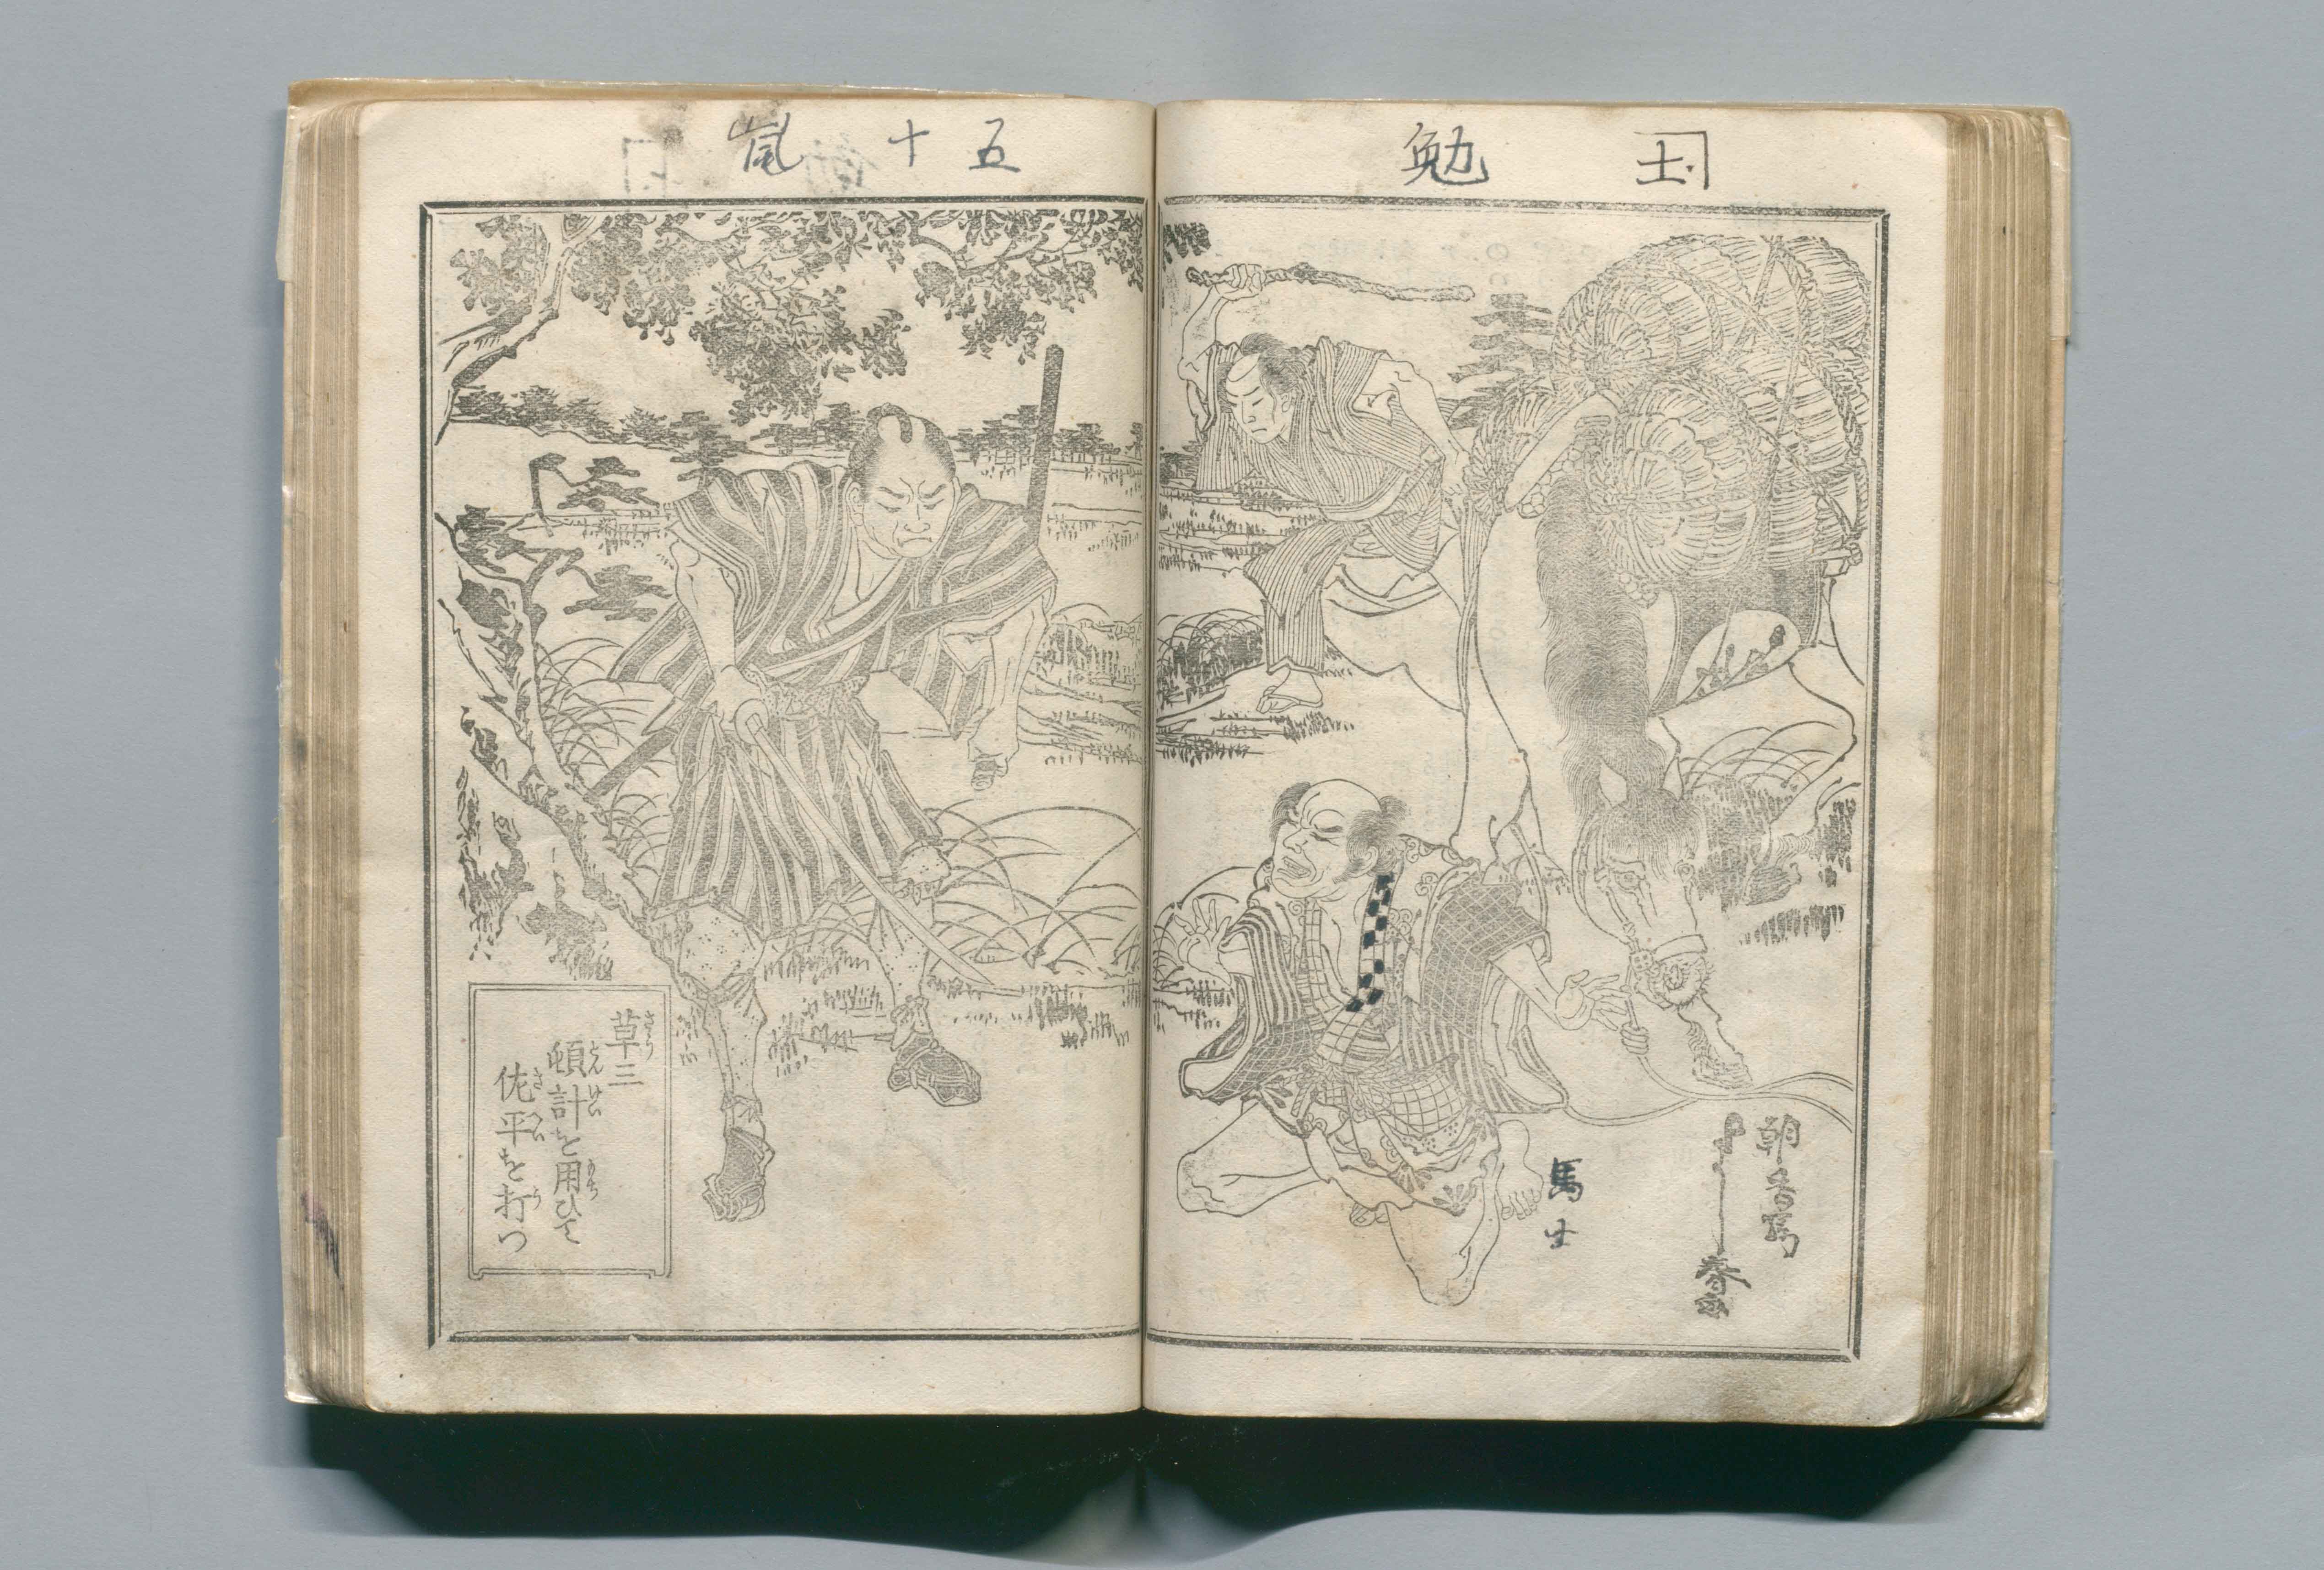 勉
五十嵐
馬士
よし春画
草三
頓計を用ひて
佐平を打つ